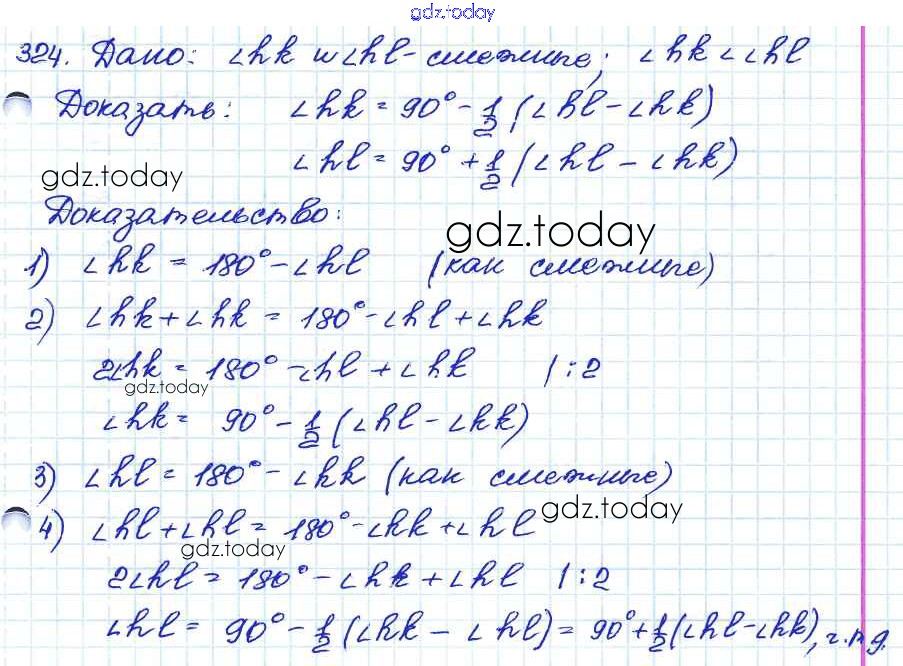 gdz.today
324. Дано: ∠hk и ∠hl - смежные; ∠hk < ∠hl
Доказать: ∠hk = 90° - 1/2 (∠hl - ∠hk)
∠hl = 90° + 1/2 (∠hl - ∠hk)
gdz.today
Доказательство:
gdz.today
1) ∠hk = 180° - ∠hl (как смежные)
2) ∠hk + ∠hk = 180° - ∠hl + ∠hk
2∠hk = 180° - ∠hl + ∠hk | : 2
gdz.today
∠hk = 90° - 1/2 (∠hl - ∠hk)
3) ∠hl = 180° - ∠hk (как смежные)
gdz.today
4) ∠hl + ∠hl = 180° - ∠hk + ∠hl
gdz.today
2∠hl = 180° - ∠hk + ∠hl | : 2
∠hl = 90° - 1/2 (∠hk - ∠hl) = 90° + 1/2 (∠hl - ∠hk), ч.т.д.